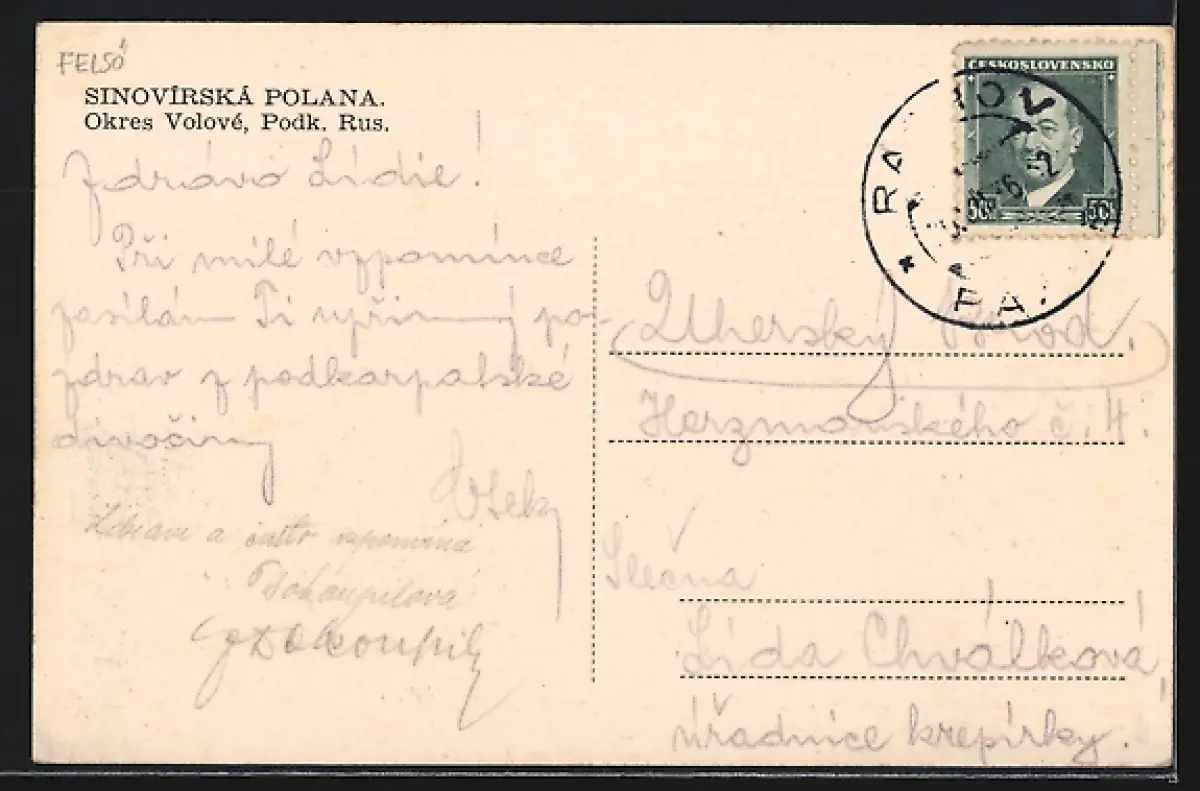 FELSŐ
SINOVÍRSKÁ POLANA.
Okres Volové, Podk. Rus.
Zdrávo Lídie!
Při milé vzpomínce
zasílám Ti upřímný po-
zdrav z podkarpatské
divočiny
Zdraví a často vzpomíná
Dokoupilová
Dokoupil
ČESKOSLOVENSKO
50 50
RA
Uherský Brod.
Herzmanského č. 4.
Slečna
Lída Chválková,
úřadnice krepírky.